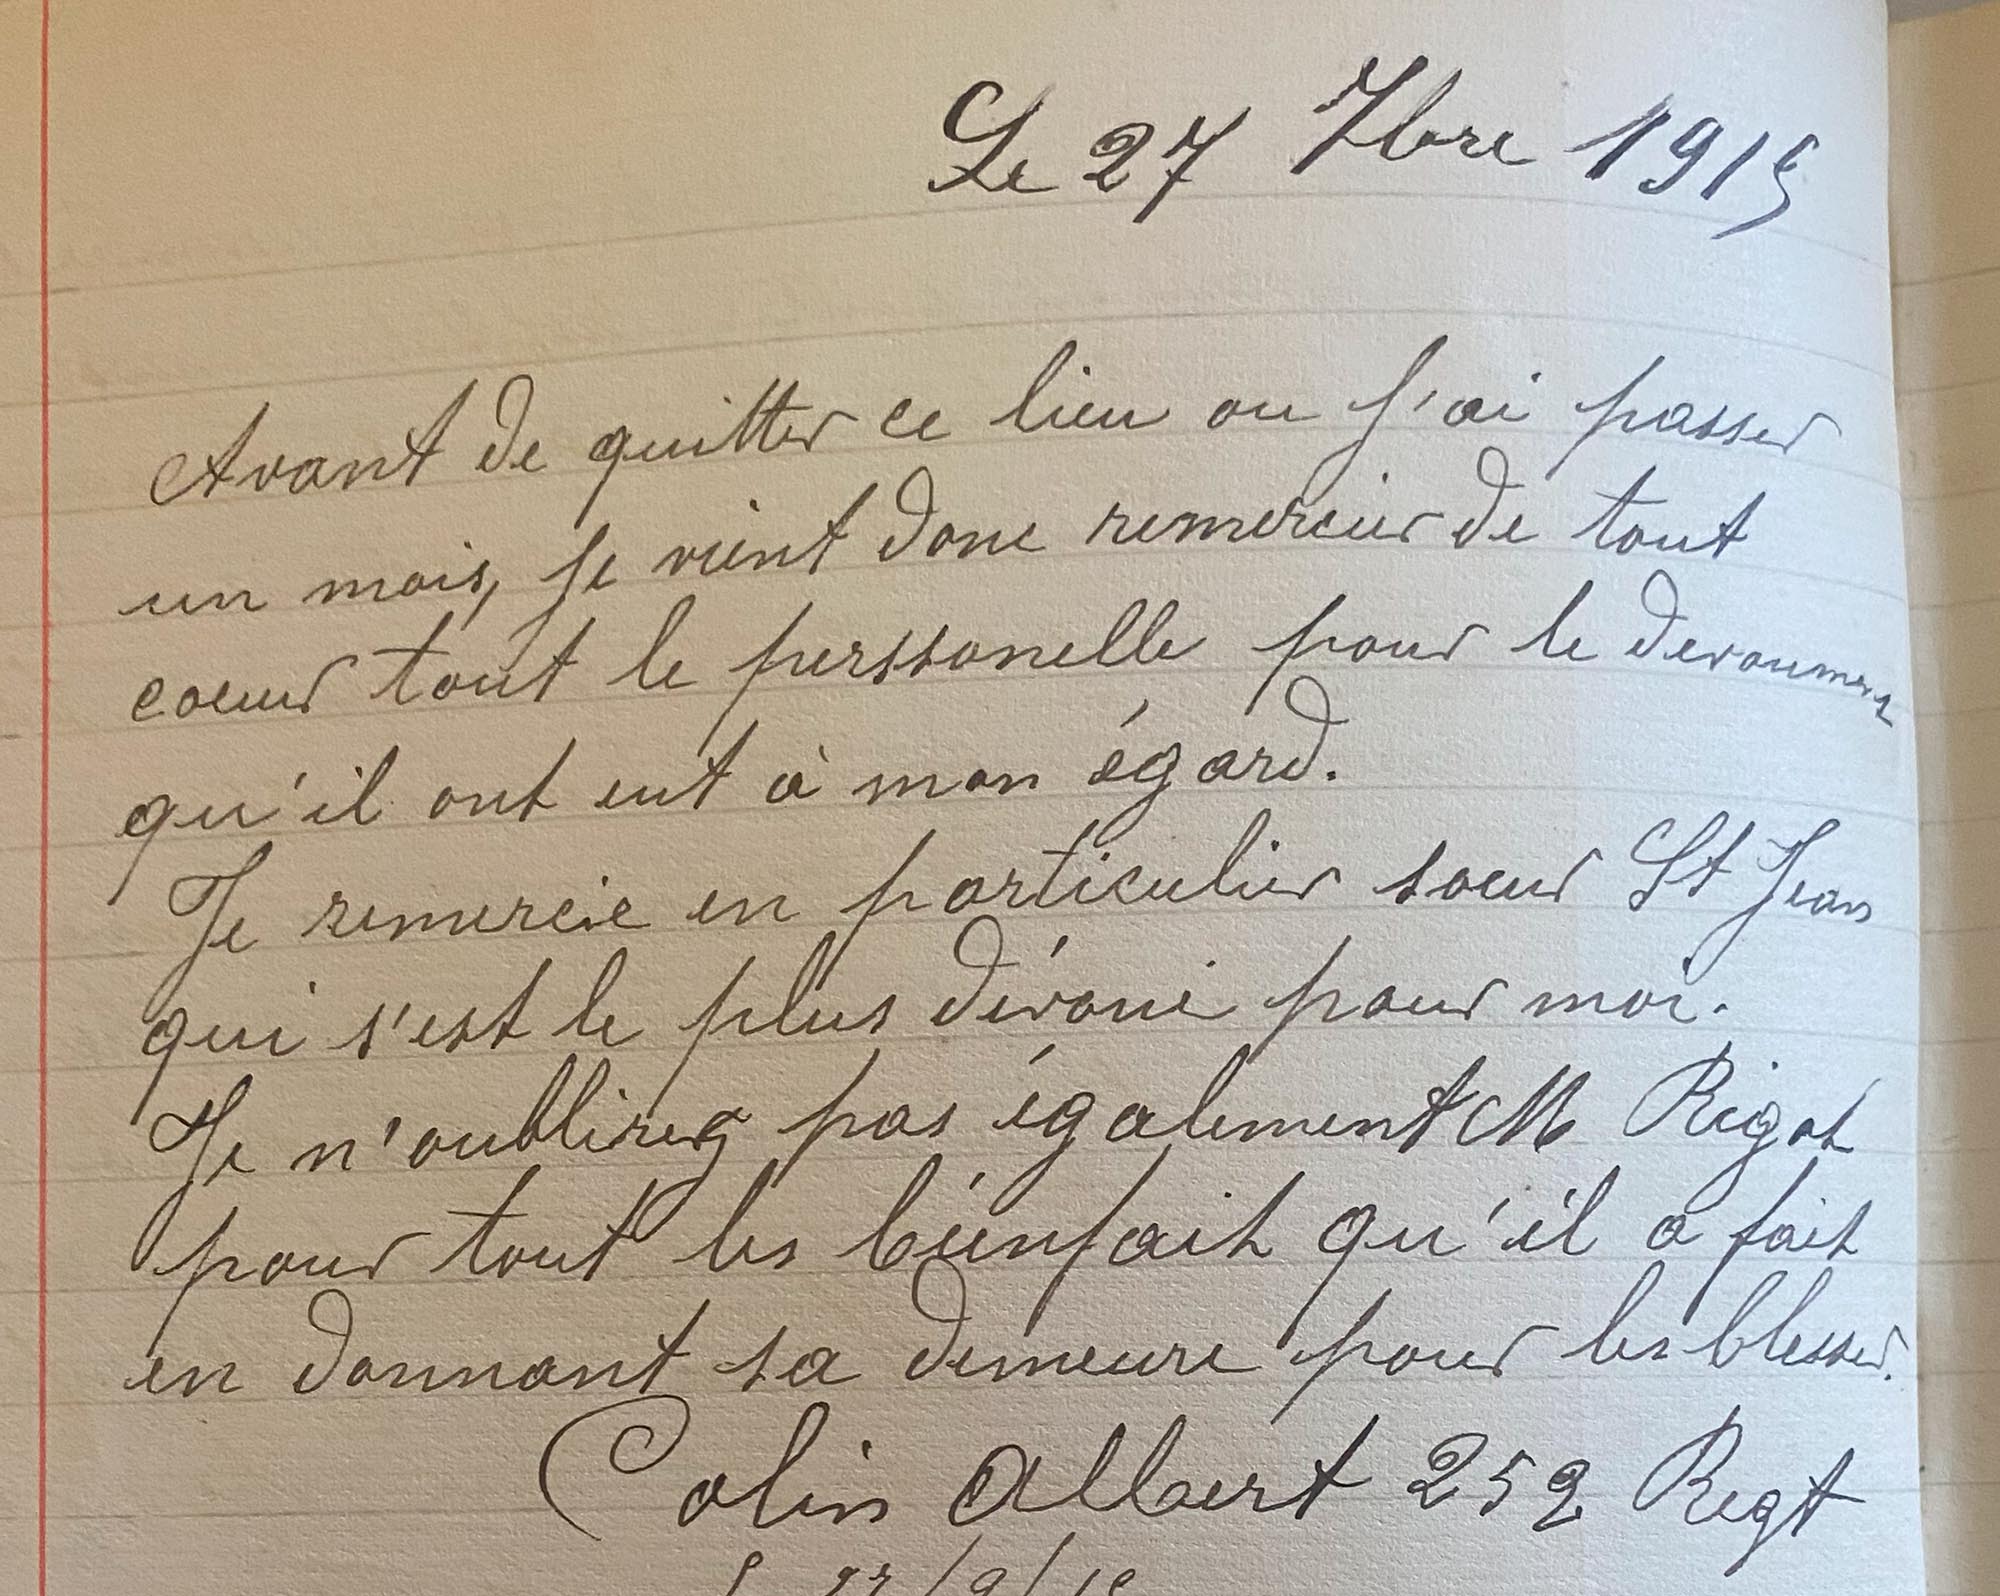 Le 27 7bre 1915
Avant de quitter ce lieu ou j'ai passer
un mois, je vient donc remercier de tout
coeur tout le perssonelle pour le devoument
qu'il ont eut à mon égard.
Je remercie en particulier soeur St Jean
qui s'est le plus dévoué pour moi.
Je n'oublirez pas également M Rigot
pour tout les bienfait qu'il a fait
en donnant sa demeure pour les blesser.
Colin Albert 252 Regt